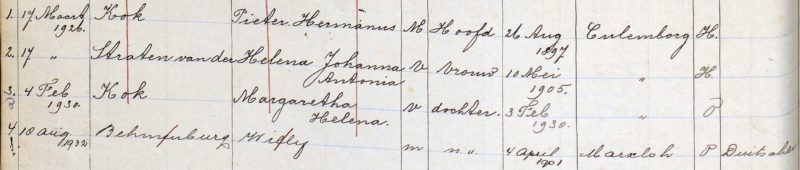 1. 17 Maart 1926. Kok Pieter Hermanus M Hoofd 26 Aug 1897 Culemborg H.
2. 17 " Straten van der Helena Johanna Antonia V vrouw 10 Mei 1905. " H
3. 4 Feb 1930. Kok Margaretha Helena. V dochter. 3 Feb 1930. "
4 10 Aug 1932 Willy m n.v. 4 April 1901 Marxloh P